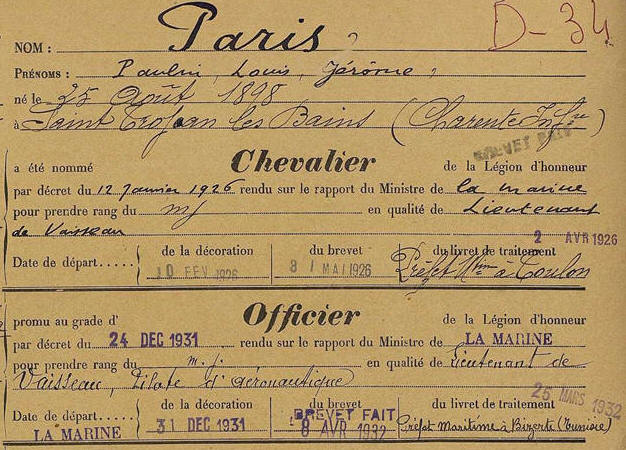 D-34
NOM : Paris
PRÉNOMS : Paulin, Louis, Jérôme,
né le 25 Août 1898
à Saint Trojan les Bains (Charente Infre)
Chevalier
a été nommé de la Légion d'honneur
par décret du 12 Janvier 1926 rendu sur le rapport du Ministre de la marine
pour prendre rang du mj en qualité de Lieutenant
de Vaisseau
2 AVR 1926
de la décoration du brevet du livret de traitement
Date de départ..... 10 FEV 1926 8 MAI 1926 Préfet Mtime à Toulon
Officier
promu au grade d' de la Légion d'honneur
par décret du 24 DEC 1931 rendu sur le rapport du Ministre de LA MARINE
pour prendre rang du m. j. en qualité de Lieutenant de
Vaisseau, Pilote d'aéronautique
25 MARS 1932
de la décoration BREVET FAIT du livret de traitement
Date de départ..... 31 DEC 1931 8 AVR 1932 Préfet Maritime à Bizerte (Tunisie)
LA MARINE